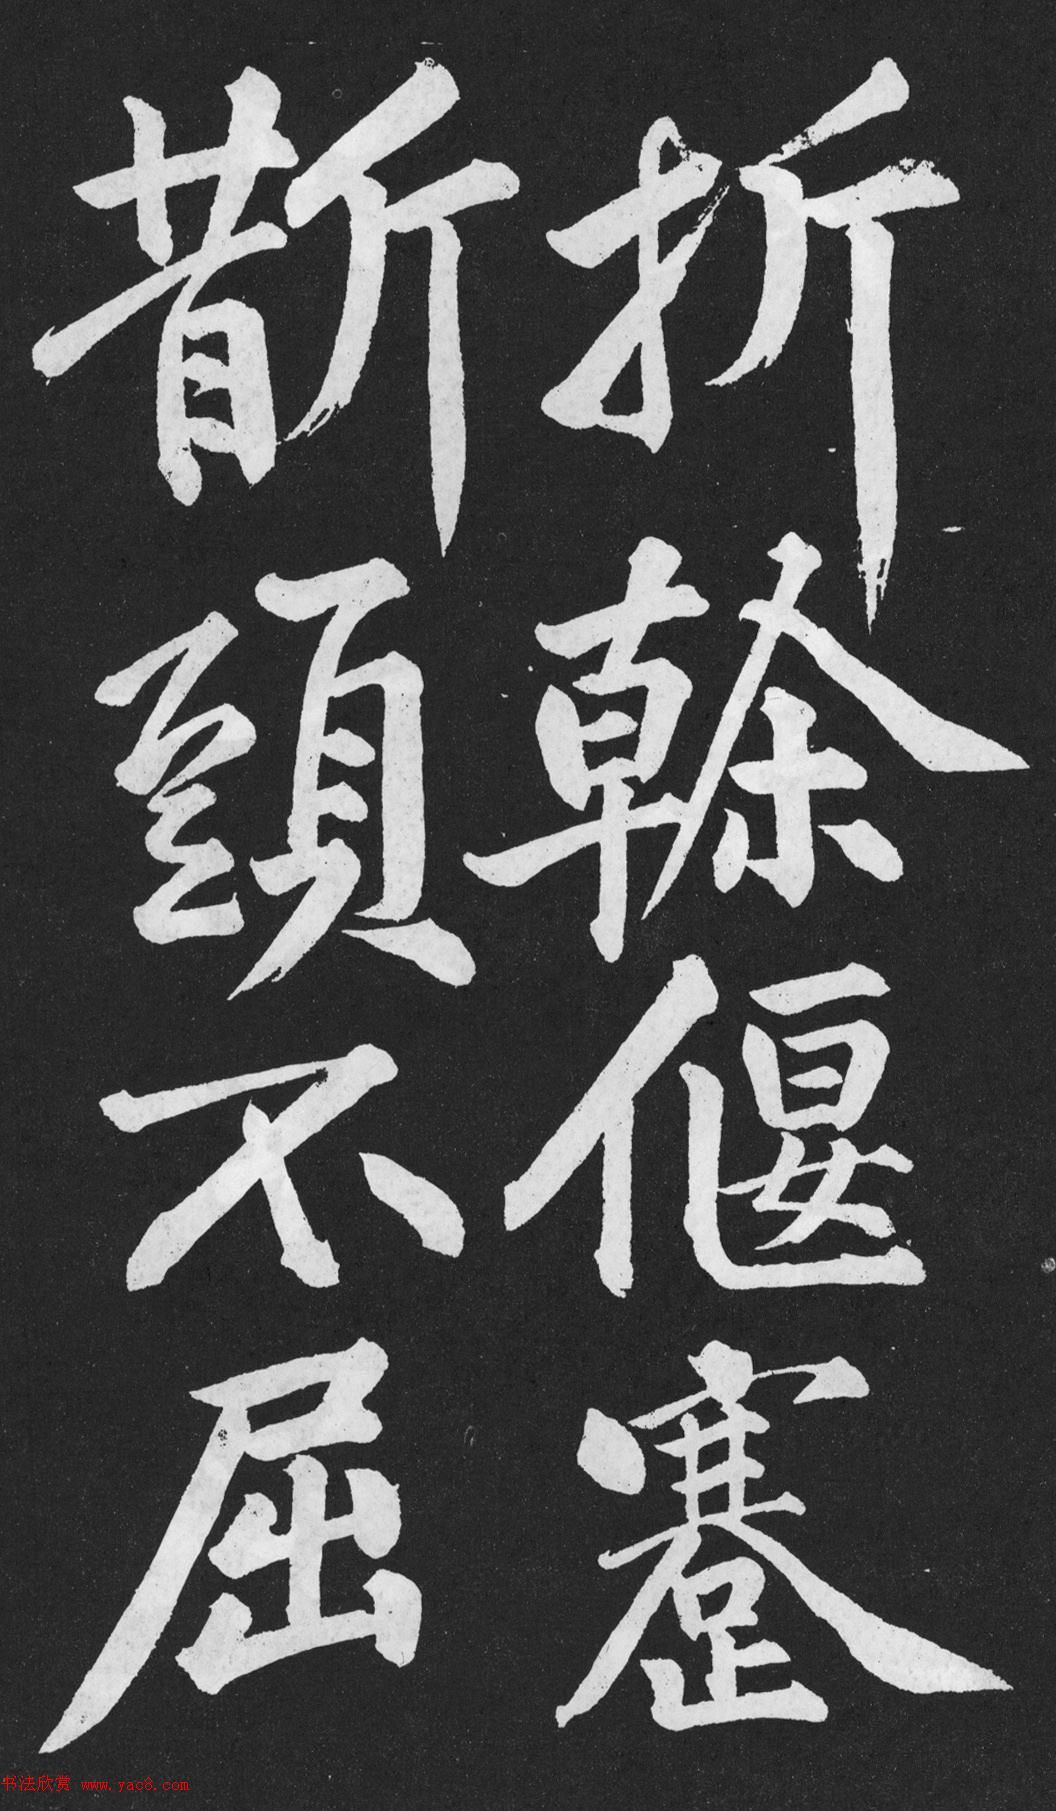 折榦偃蹇
斮頭不屈
书法欣赏 www.yac8.com